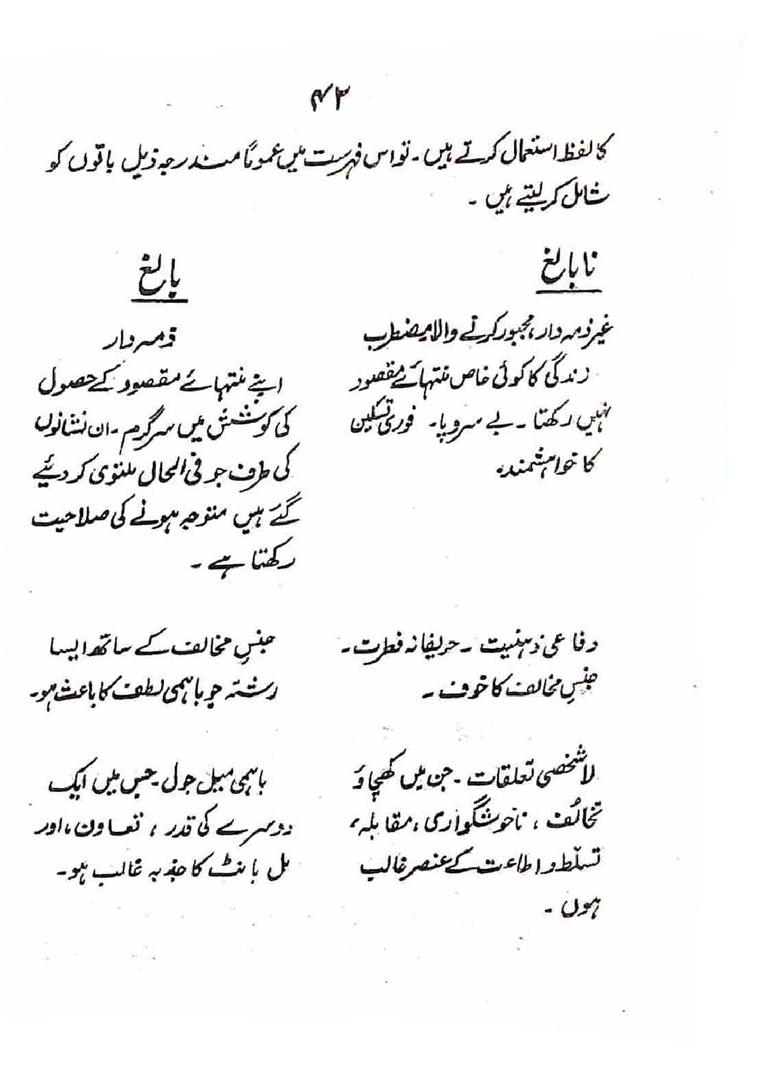 ۴۳
کا لفظ استعمال کرتے ہیں۔ تو اس فہرست میں عموماً مندرجہ ذیل باتوں کو
شامل کر لیتے ہیں۔
نابالغ
غیر ذمہ دار، مجبور کرنے والا مضطرب
زندگی کا کوئی خاص منتہائے مقصود
نہیں رکھتا۔ بے سروپا۔ فوری تسکین
کا خواہشمند۔
دفاعی ذہنیت۔ حریفانہ فطرت۔
جنسِ مخالف کا خوف۔
لاشخصی تعلقات۔ جن میں کھچاؤ
تخالُف، ناخوشگواری، مقابلہ،
تسلّط و اطاعت کے عنصر غالب
ہوں۔
بالغ
ذمہ دار
اپنے منتہائے مقصود کے حصول
کی کوشش میں سرگرم۔ ان نشانوں
کی طرف جو فی الحال ملتوی کر دئیے
گئے ہیں متوجہ ہونے کی صلاحیت
رکھتا ہے۔
جنسِ مخالف کے ساتھ ایسا
رشتہ جو باہمی لطف کا باعث ہو۔
باہمی میل جول۔ جس میں ایک
دوسرے کی قدر، تعاون، اور
بل بانٹ کا جذبہ غالب ہو۔